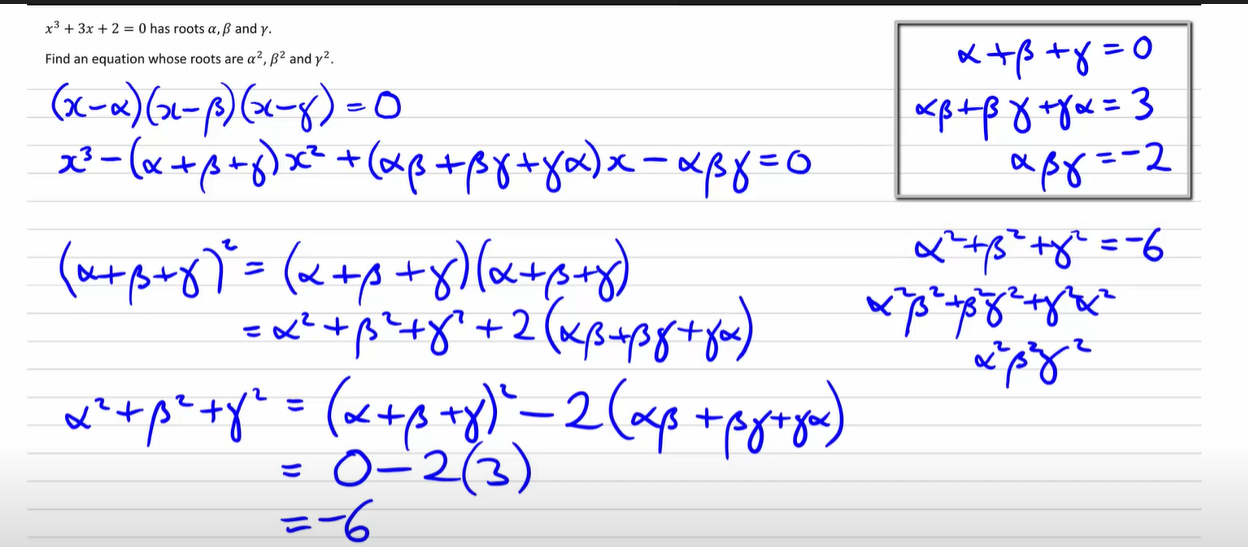 x³ + 3x + 2 = 0 has roots α, β and γ.
Find an equation whose roots are α², β² and γ².
(x-α)(x-β)(x-γ) = 0
x³-(α+β+γ)x²+(αβ+βγ+γα)x-αβγ=0
α+β+γ=0
αβ+βγ+γα=3
αβγ=-2
(α+β+γ)²=(α+β+γ)(α+β+γ)
=α²+β²+γ²+2(αβ+βγ+γα)
α²+β²+γ² = (α+β+γ)²-2(αβ+βγ+γα)
= 0-2(3)
=-6
α²+β²+γ²=-6
α²β²+β²γ²+γ²α²
α²β²γ²